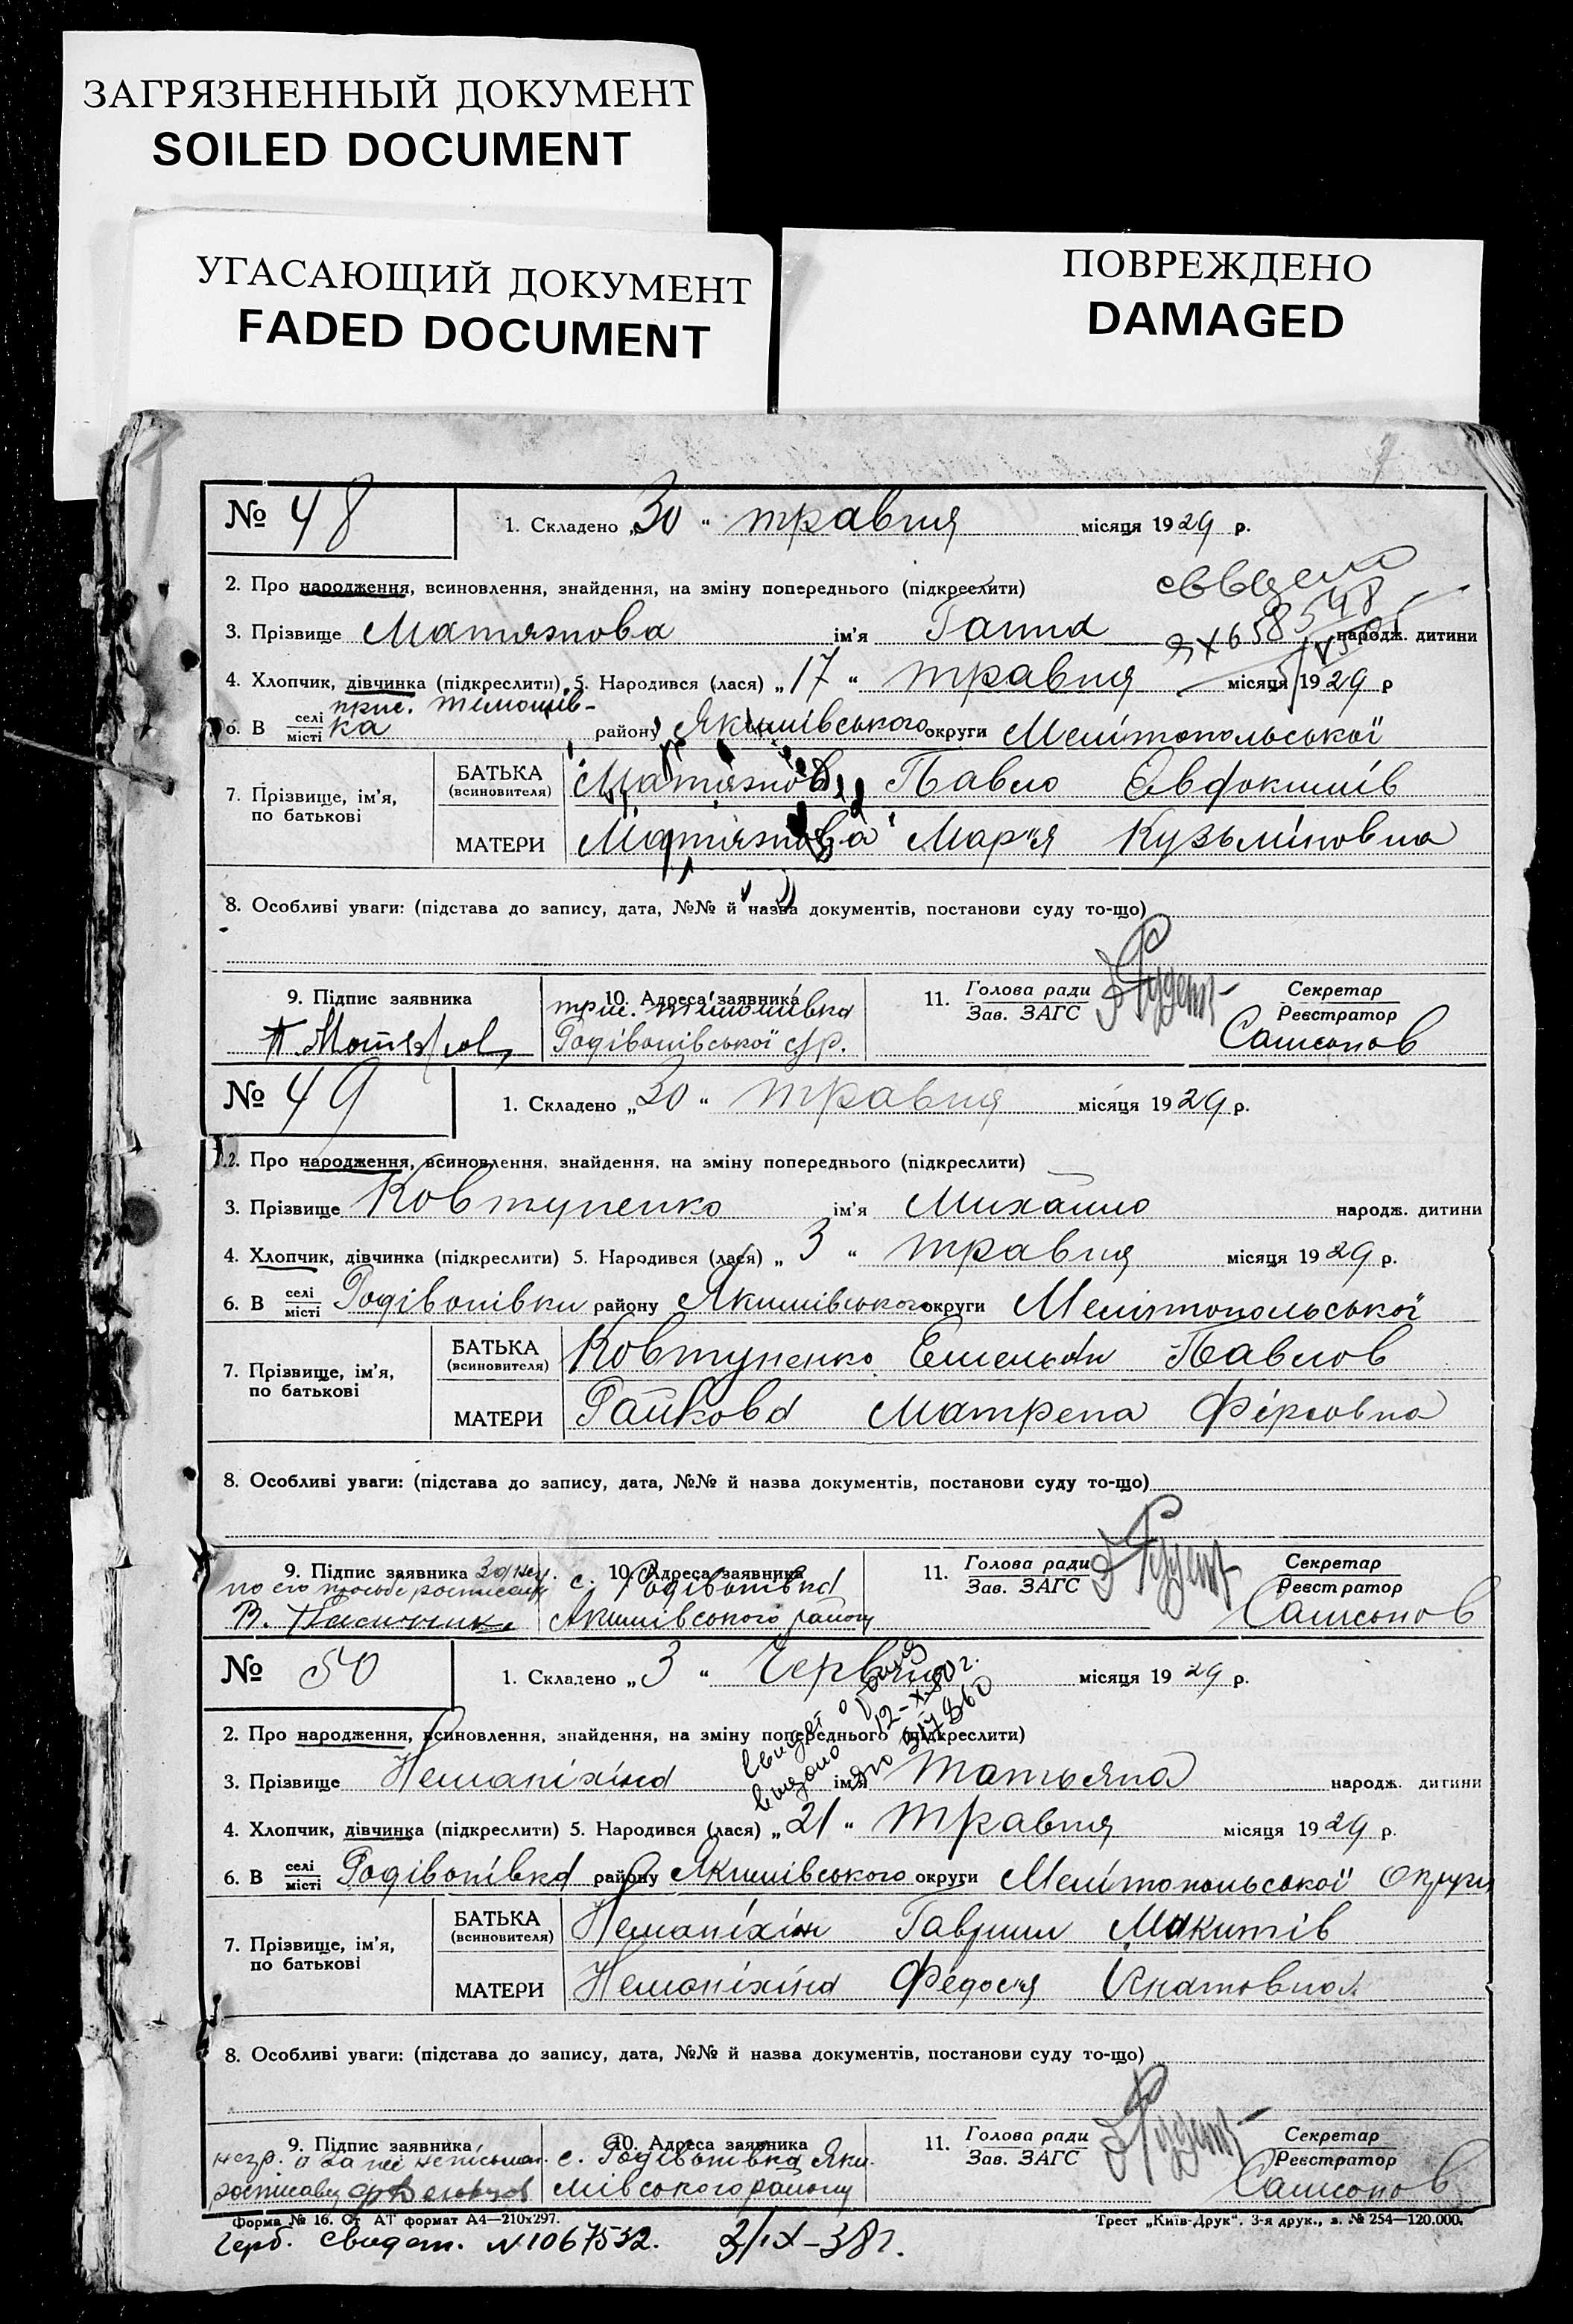 ЗАГРЯЗНЕННЫЙ ДОКУМЕНТ
SOILED DOCUMENT
УГАСАЮЩИЙ ДОКУМЕНТ
FADED DOCUMENT
ПОВРЕЖДЕНО
DAMAGED
№ 48
1. Складено „30“ травня місяця 1929 р.
2. Про народження, всиновлення, знайдення, на зміну попереднього (підкреслити)
3. Прізвище Матязнова ім'я Ганна народж. дитини
4. Хлопчик, дівчинка (підкреслити) 5. Народився (лася) „17“ травня місяця 1929 р
6. В селі місті Тимошівка району Якимівського округи Мелітопольської
7. Прізвище, ім'я, по батькові
БАТЬКА (всиновителя) Матязнов Павло Овдокимів
МАТЕРИ Матязнова Мар'я Кузьмировна
8. Особливі уваги: (підстава до запису, дата, №№ й назва документів, постанови суду то-що)
9. Підпис заявника
10. Адреса заявника Тимошівка
Родівонівської с/р.
11. Голова ради Зав. ЗАГС
Секретар Реєстратор
Самсонов
№ 49
1. Складено „30“ травня місяця 1929 р.
2. Про народження, всиновлення, знайдення, на зміну попереднього (підкреслити)
3. Прізвище Ковтуненко ім'я Михайло народж. дитини
4. Хлопчик, дівчинка (підкреслити) 5. Народився (лася) „3“ травня місяця 1929 р.
6. В селі місті Родівонівки району Якимівського округи Мелітопольської
7. Прізвище, ім'я, по батькові
БАТЬКА (всиновителя) Ковтуненко Емельян Павлов
МАТЕРИ Райкова Матрена Фірсовна
8. Особливі уваги: (підстава до запису, дата, №№ й назва документів, постанови суду то-що)
9. Підпис заявника
по его просьбе
В. Пасічник
10. Адреса заявника с. Родівонівка
Якимівського району
11. Голова ради Зав. ЗАГС
Секретар Реєстратор
Самсонов
№ 50
1. Складено „3“ Червня місяця 1929 р.
2. Про народження, всиновлення, знайдення, на зміну попереднього (підкреслити)
выдано 12-X-80 г.
3. Прізвище Немоніхіна ім'я Татьяна народж. дитини
4. Хлопчик, дівчинка (підкреслити) 5. Народився (лася) „21“ травня місяця 1929 р.
6. В селі місті Родівонівка району Якимівського округи Мелітопольської Округи
7. Прізвище, ім'я, по батькові
БАТЬКА (всиновителя) Немоніхін Гаврил Микитів
МАТЕРИ Немоніхіна Федос'я Гнатовна
8. Особливі уваги: (підстава до запису, дата, №№ й назва документів, постанови суду то-що)
9. Підпис заявника
10. Адреса заявника с. Родівонівка Яки-
мівського району
11. Голова ради Зав. ЗАГС
Секретар Реєстратор
Самсонов
Форма № 16. Ст АТ формат А4—210х297.
Трест „Київ-Друк“. 3-я друк., з. № 254—120.000.
Герб. свидет. N 1067532. 3/IX-38 г.